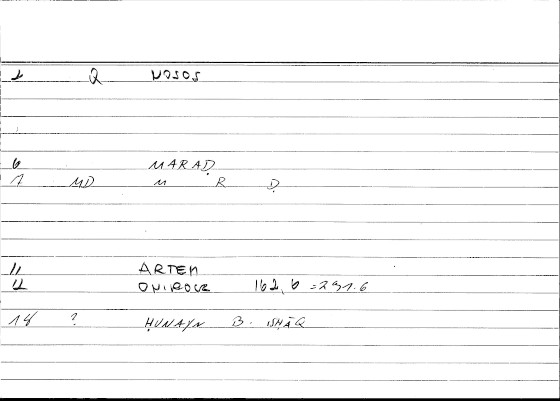 1 Q NOSOS
6 MARAḌ
7 MD M R Ḍ
11 ARTEM
12 ONIROCR 162,6 =291.6
18 ? ḤUNAYN B. ISḤĀQ